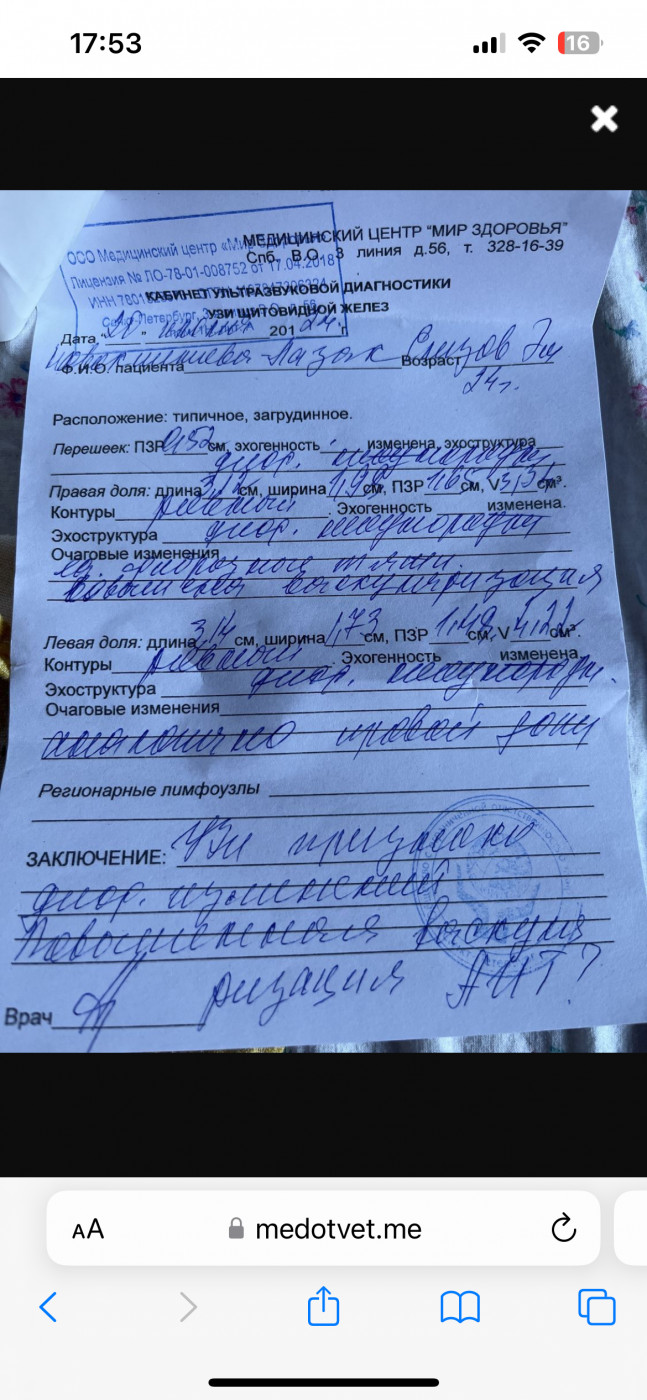 17:53
16
ООО Медицинский центр «Мир
МЕДИЦИНСКИЙ ЦЕНТР "МИР ЗДОРОВЬЯ"
Лицензия № ЛО-78-01-008752 от 17.04.2018
Спб, В.О. 3 линия д.56, т. 328-16-39
ИНН 7801
КАБИНЕТ УЛЬТРАЗВУКОВОЙ ДИАГНОСТИКИ
Санкт-Петербург, 3
УЗИ ЩИТОВИДНОЙ ЖЕЛЕЗ
Дата " " 201 24 г
Ф.И.О. пациента Возраст
24 г.
Расположение: типичное, загрудинное.
Перешеек: ПЗР 0,52 см, эхогенность изменена, эхоструктура
диф. неоднородн
Правая доля: длина см, ширина см, ПЗР 1,65 см, V см³.
Контуры ровный . Эхогенность изменена.
Эхоструктура диф. неоднородн
Очаговые изменения
фиброзные тяжи
повышенная васкуляризация
Левая доля: длина 3,14 см, ширина 1,73 см, ПЗР 1,49 см, V 4,22 см³.
Контуры ровный Эхогенность изменена.
Эхоструктура диф. неоднородн.
Очаговые изменения
аналогично правой доли
Регионарные лимфоузлы
ЗАКЛЮЧЕНИЕ: УЗИ признаки
диф. изменений
Повышенная васкуля
ризация АИТ?
Врач
AA medotvet.me